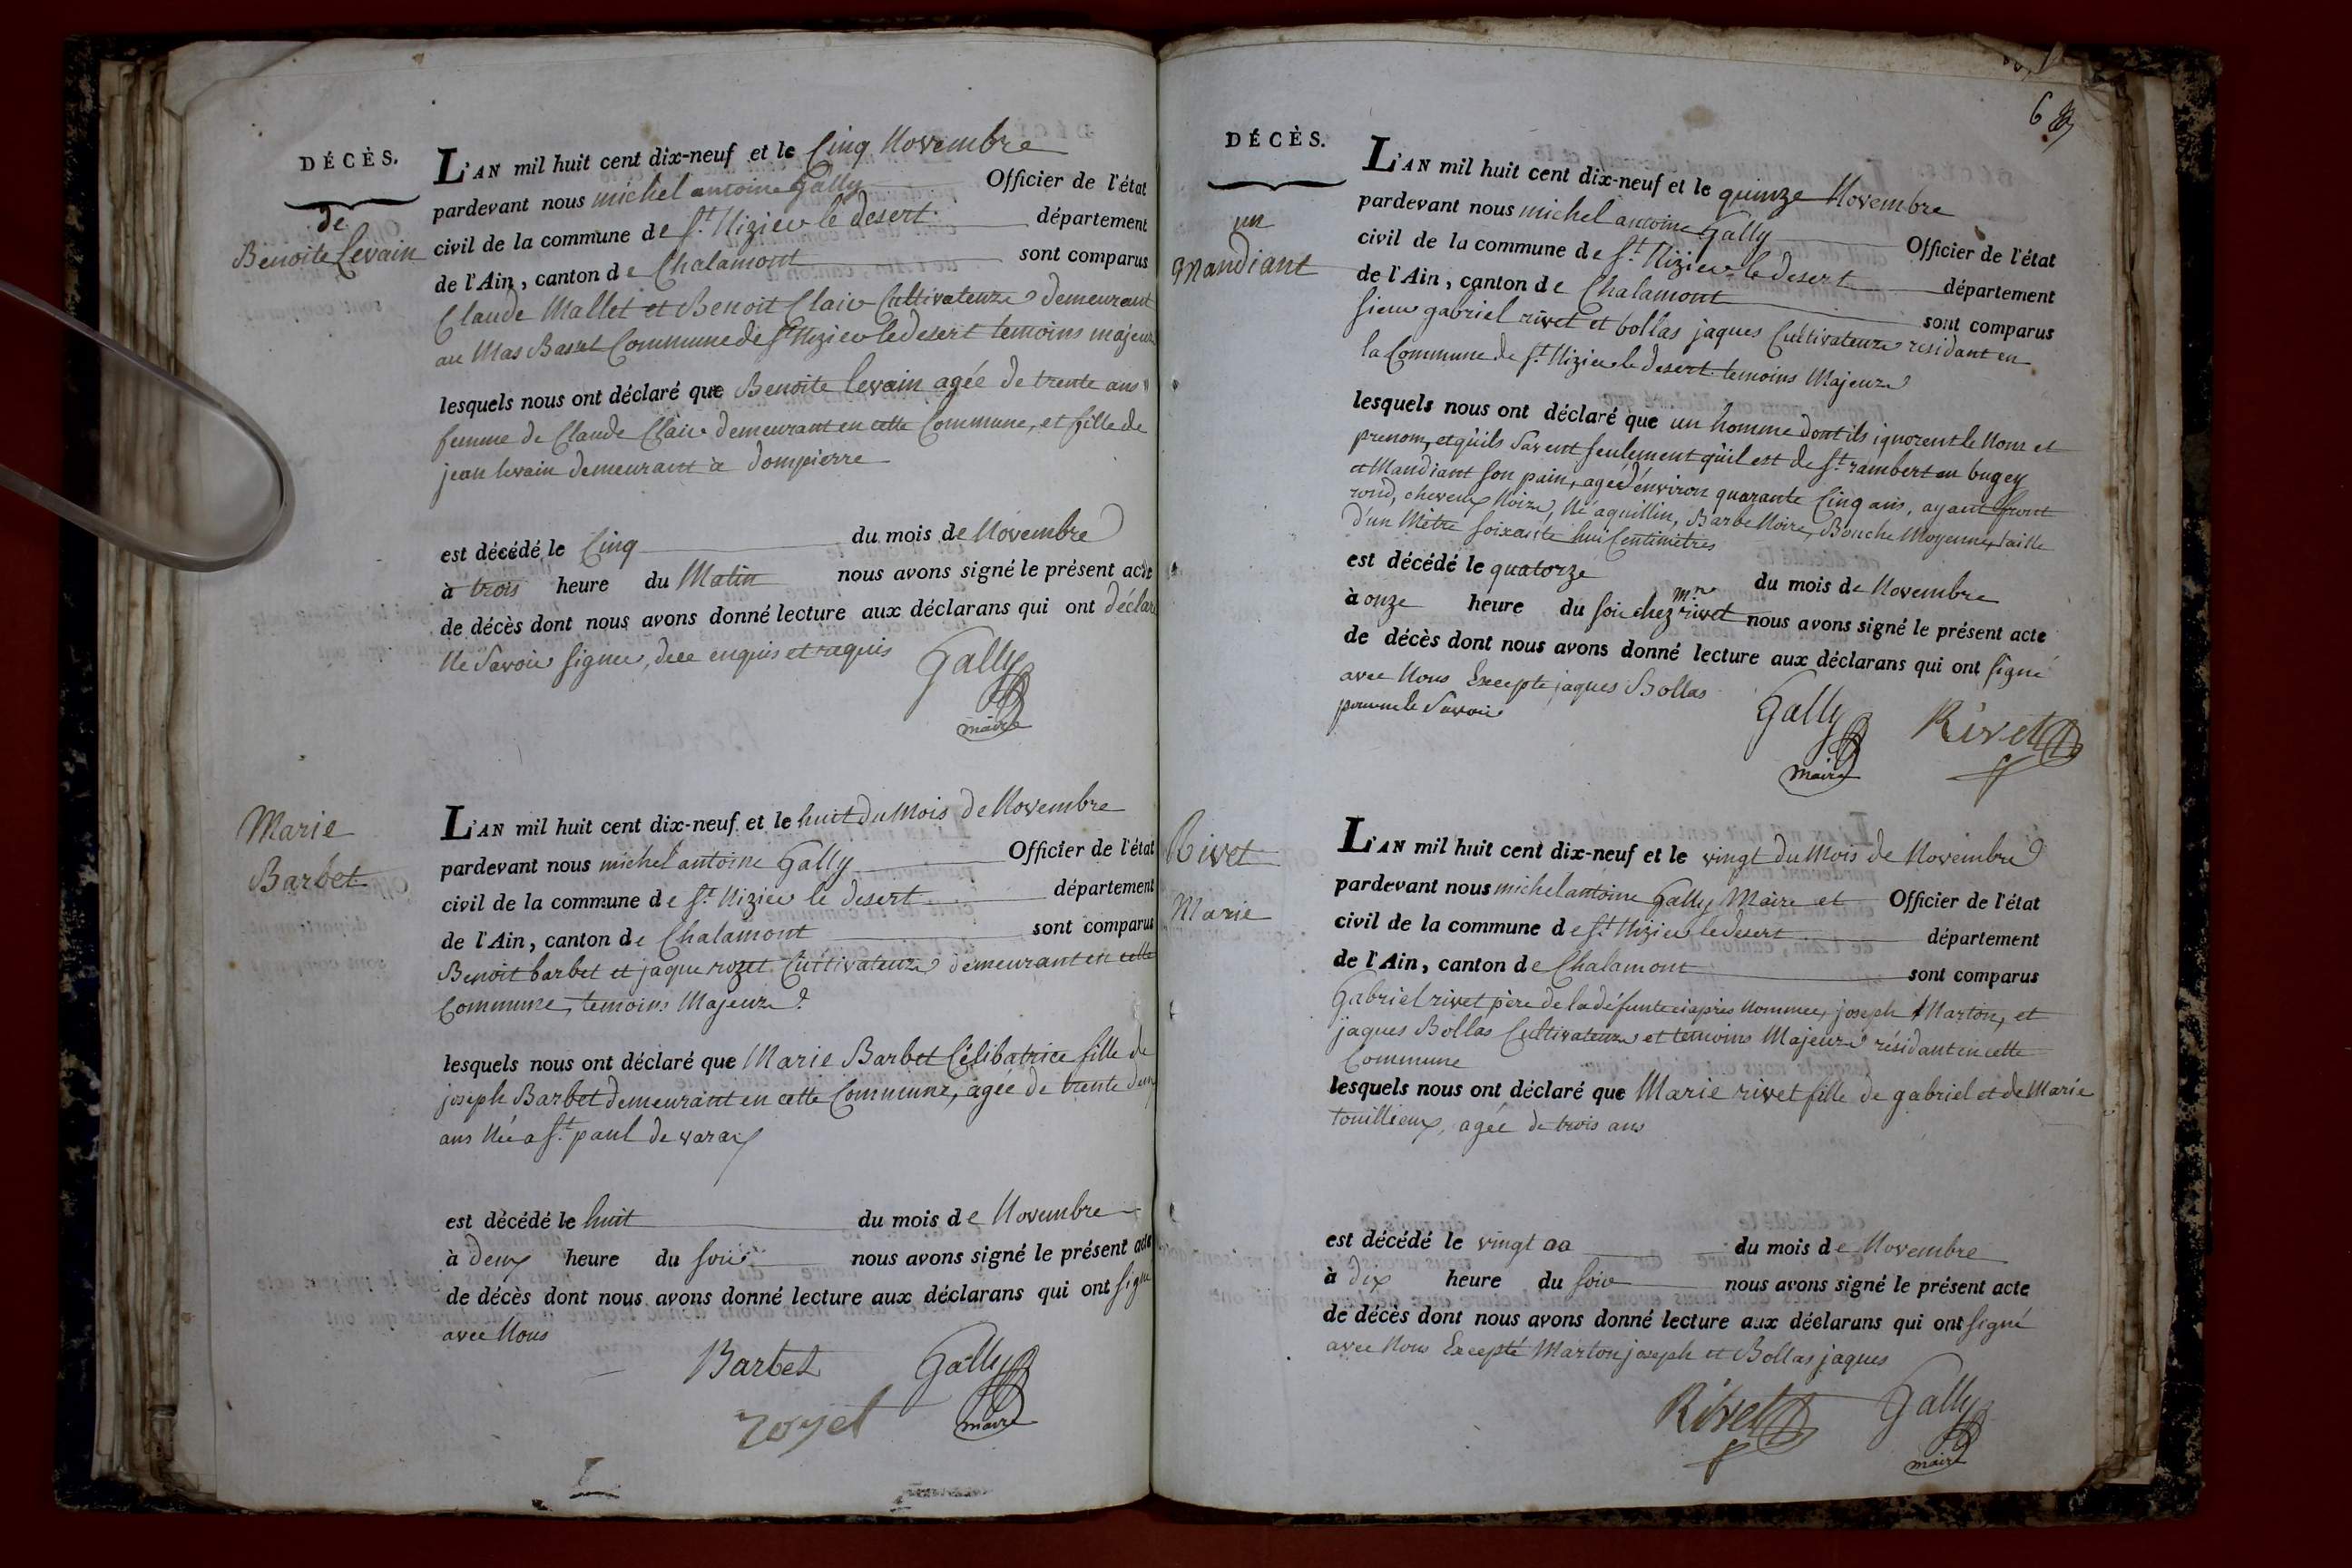 DÉCÈS.
de
Benoite Levain
L'AN mil huit cent dix-neuf et le Cinq Novembre
pardevant nous michel antoine Gally Officier de l'état
civil de la commune de St. Nizier le desert département
de l'Ain, canton de Chalamont sont comparus
Claude Mallet et Benoit Clair Cultivateurs demeurant
au Mas Basset Commune de St Nizier le desert temoins majeurs
lesquels nous ont déclaré que Benoite levain agée de trente ans
femme de Claude Clair demeurant en cette Commune, et fille de
jean levain demeurant à dompierre
est décédé le Cinq du mois de Novembre
à trois heure du Matin nous avons signé le présent acte
de décès dont nous avons donné lecture aux déclarans qui ont déclaré
Ne Savoir signer, de ce enquis et requis
Gally
maire
Marie
Barbet
L'AN mil huit cent dix-neuf et le huit du Mois de Novembre
pardevant nous michel antoine Gally Officier de l'état
civil de la commune de St. Nizier le desert département
de l'Ain, canton de Chalamont sont comparus
Benoit barbet et jaque rozet Cultivateurs demeurant en cette
Commune, temoins Majeurs
lesquels nous ont déclaré que Marie Barbet Célibatrice fille de
joseph Barbet demeurant en cette Commune, agée de trente deux
ans Née a St. paul de varax
est décédé le huit du mois de Novembre
à deux heure du soir nous avons signé le présent acte
de décès dont nous avons donné lecture aux déclarans qui ont signé
avec Nous
Barbet Gally
rozet maire
6
DÉCÈS.
un
Mandiant
L'AN mil huit cent dix-neuf et le quinze Novembre
pardevant nous michel antoine Gally Officier de l'état
civil de la commune de St. Nizier le desert département
de l'Ain, canton de Chalamont sont comparus
sieur gabriel rivet et bollas jaques Cultivateurs residant en
la Commune de St. Nizier le desert temoins Majeurs
lesquels nous ont déclaré que un homme dont ils ignorent le Nom et
prenom, et qu'ils Savent seulement qu'il est de St. rambert en bugey
et Mandiant son pain, agé d'environ quarante Cinq ans, ayant front
rond, cheveux Noirs, Né aquillin, Barbe Noire, Bouche Moyenne, taille
d'un Mètre soixante hui Centimètres
est décédé le quatorze du mois de Novembre
à onze heure du soir chez mr. rivet nous avons signé le présent acte
de décès dont nous avons donné lecture aux déclarans qui ont signé
avec Nous Excepté jaques Bollas
pour ne le Savoir
Gally Rivet
maire
Rivet
Marie
L'AN mil huit cent dix-neuf et le vingt du Mois de Novembre
pardevant nous michel antoine Gally Maire et Officier de l'état
civil de la commune de St. Nizier le desert département
de l'Ain, canton de Chalamont sont comparus
Gabriel rivet père de la défunte ciaprès Nommee, joseph Marton, et
jaques Bollas Cultivateurs et temoins Majeurs résidant en cette
Commune
lesquels nous ont déclaré que Marie rivet fille de gabriel et de Marie
touillieux, agée de trois ans
est décédé le vingt du mois de Novembre
à dix heure du soir nous avons signé le présent acte
de décès dont nous avons donné lecture aux déclarans qui ont signé
avec Nous Excepté Marton joseph et Bollas jaques
Rivet Gally
maire